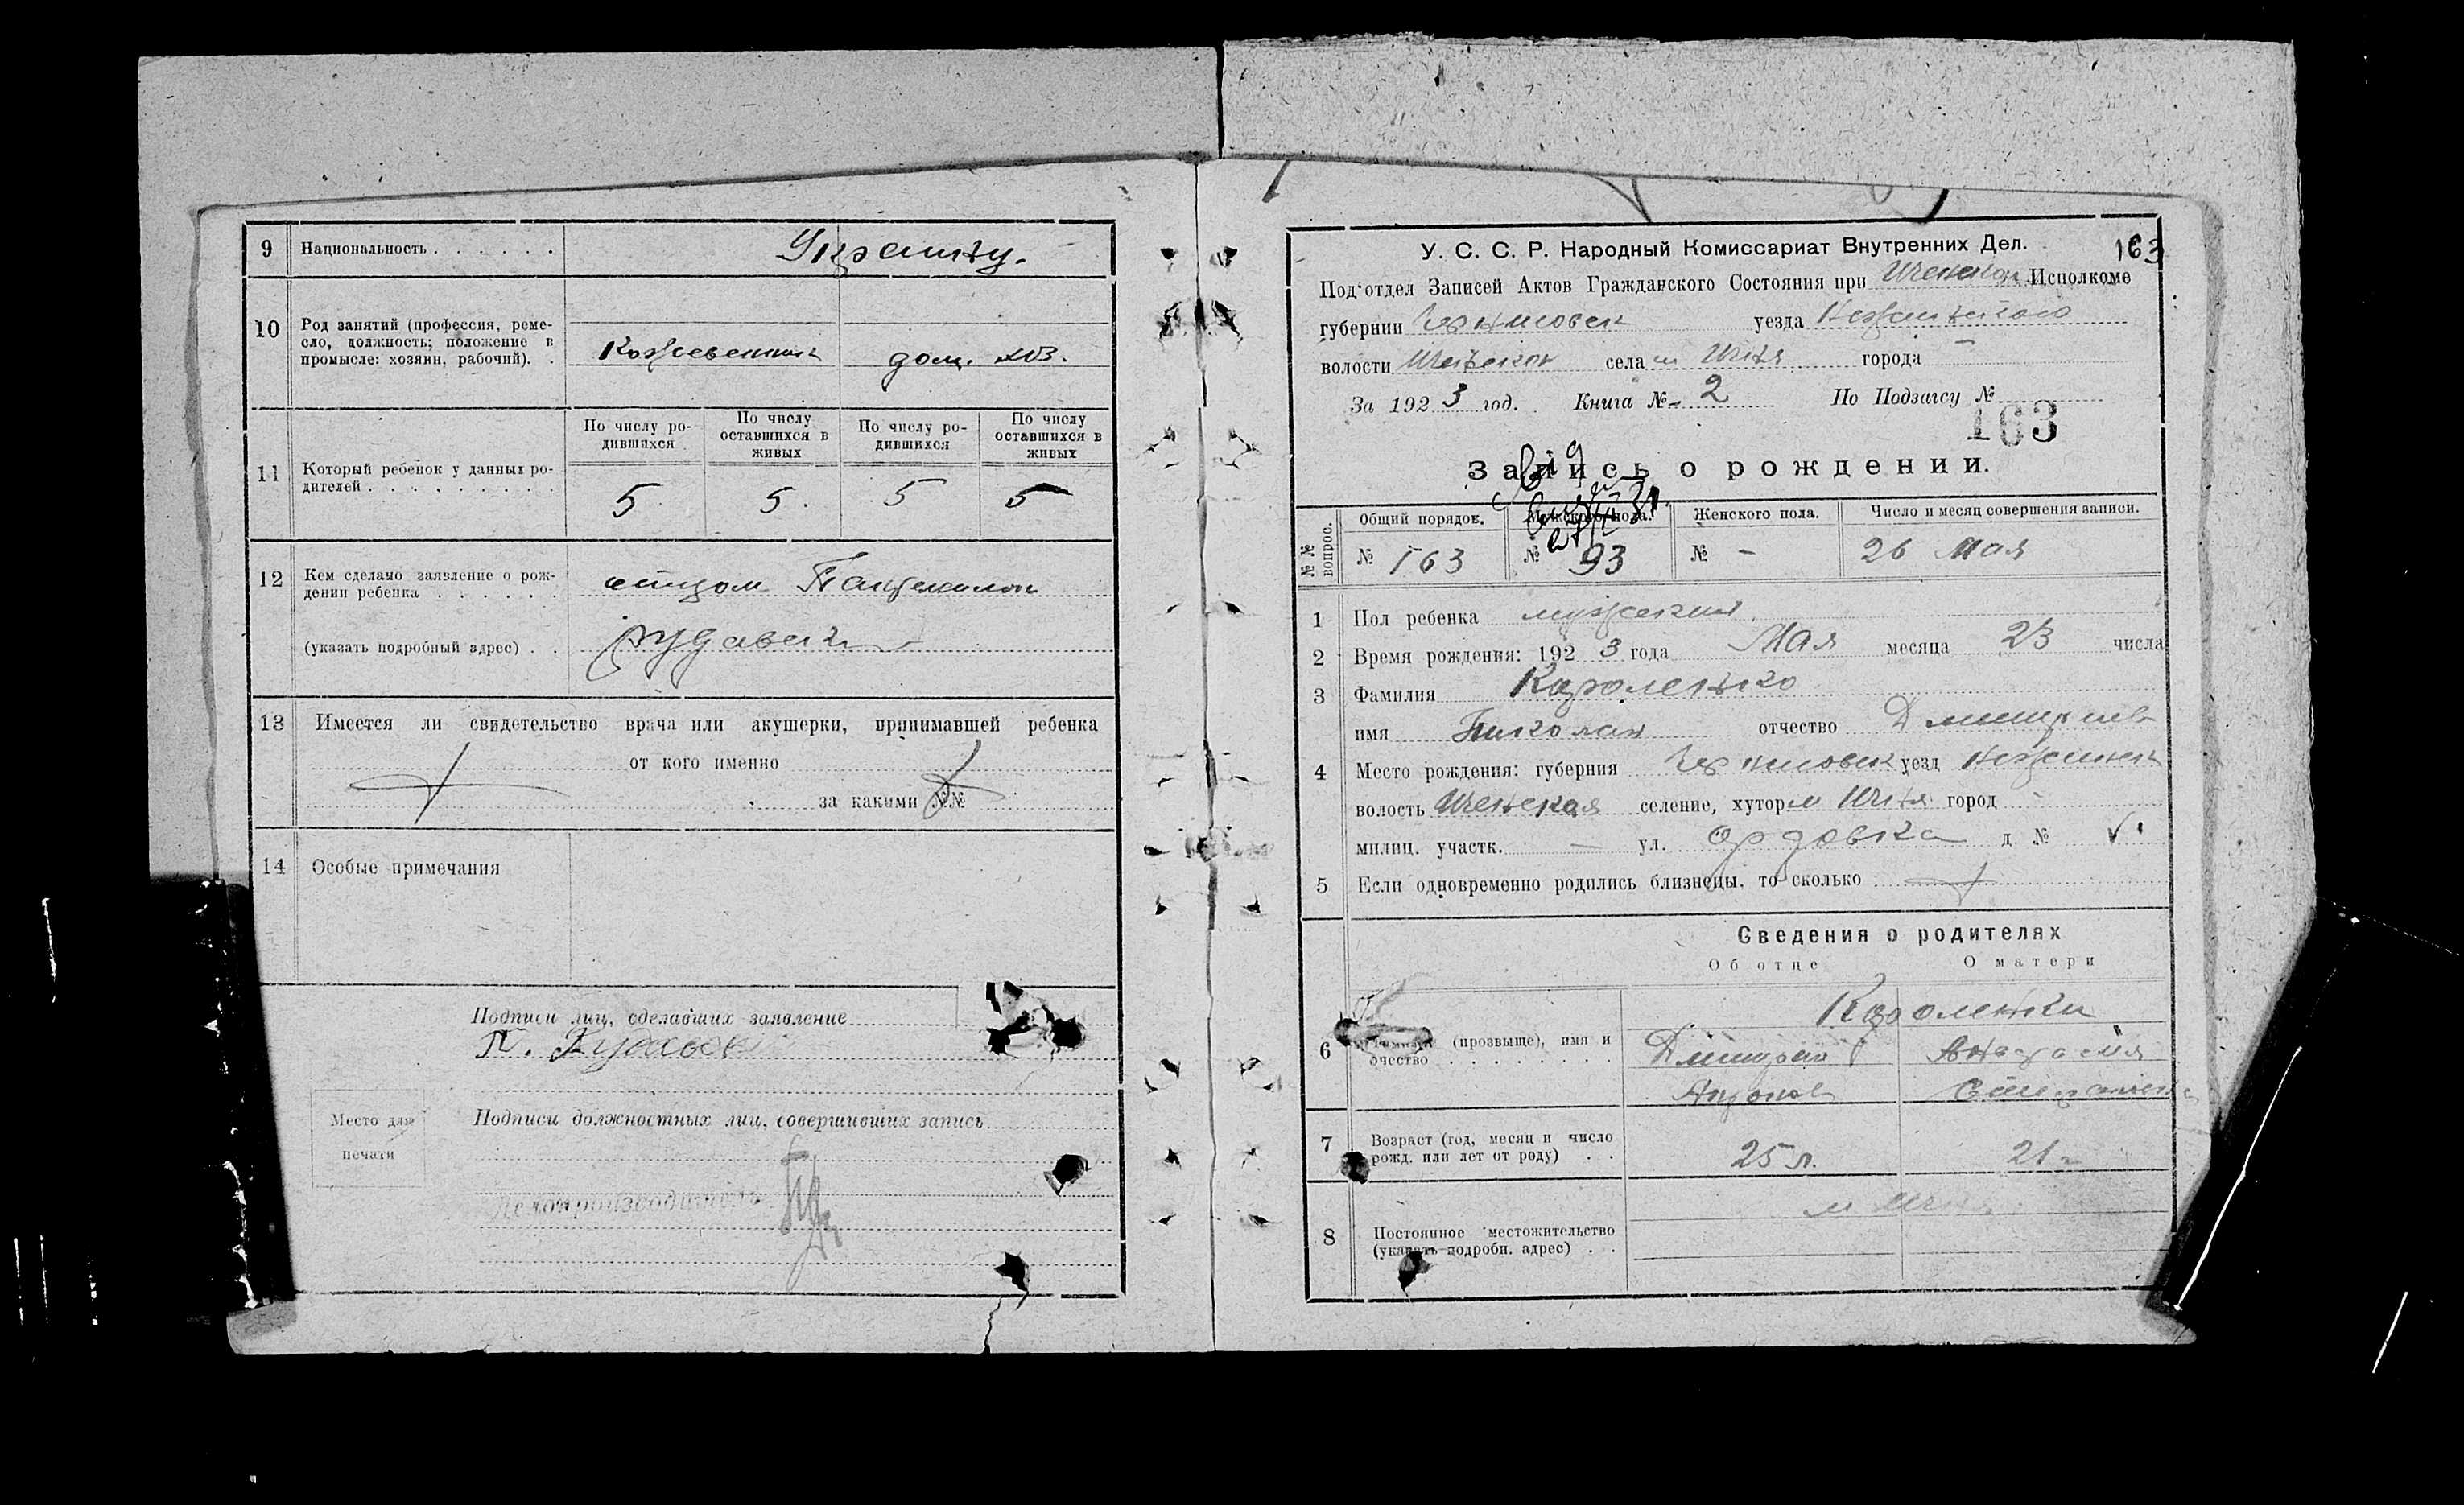 9 Национальность . . . . . . Украинцы.
10 Род занятий (профессия, реме-
сло, должность; положение в
промысле: хозяин, рабочий). .
Кожевенник дом. хоз.
11 Который ребенок у данных ро-
дителей . . . . . . . . . .
По числу ро-
дившихся
По числу
оставшихся в
живых
По числу ро-
дившихся
По числу
оставшихся в
живых
5 5. 5 5
12 Кем сделано заявление о рож-
дении ребенка . . . . . . отцом
(указать подробный адрес) . .
13 Имеется ли свидетельство врача или акушерки, принимавшей ребенка
от кого именно
за какими №№
14 Особые примечания
Подписи лиц, сделавших заявление
Место для
печати
Подписи должностных лиц, совершивших запись
Делопроизводитель
163
У. С. С. Р. Народный Комиссариат Внутренних Дел.
Под'отдел Записей Актов Гражданского Состояния при Исполкоме
губернии Черниговск уезда Нежинского
волости Иченской села м Ичня города —
За 1923 год. Книга № 2 По Подзагсу №
163
Запись о рождении.
№№ вопрос.
Общий порядок. Мужского пола. Женского пола. Число и месяц совершения записи.
№ 163 № 93 № - 26 Мая
1 Пол ребенка мужской
2 Время рождения: 1923 года Мая месяца 23 числа
3 Фамилия Короленко
имя Николай отчество Дмитриев
4 Место рождения: губерния Черниговск уезд Нежинск
волость Иченская селение, хутор м Ичня город -
милиц. участк. — ул. д №
5 Если одновременно родились близнецы, то сколько
Сведения о родителях
Об отце О матери
6 (прозвище), имя и
отчество . . . . . . . .
Короленки
Дмитрий
7 Возраст (год, месяц и число
рожд. или лет от роду) . .
25 л. 21
8 Постоянное местожительство
(указать подробн. адрес) . .
м Ичня